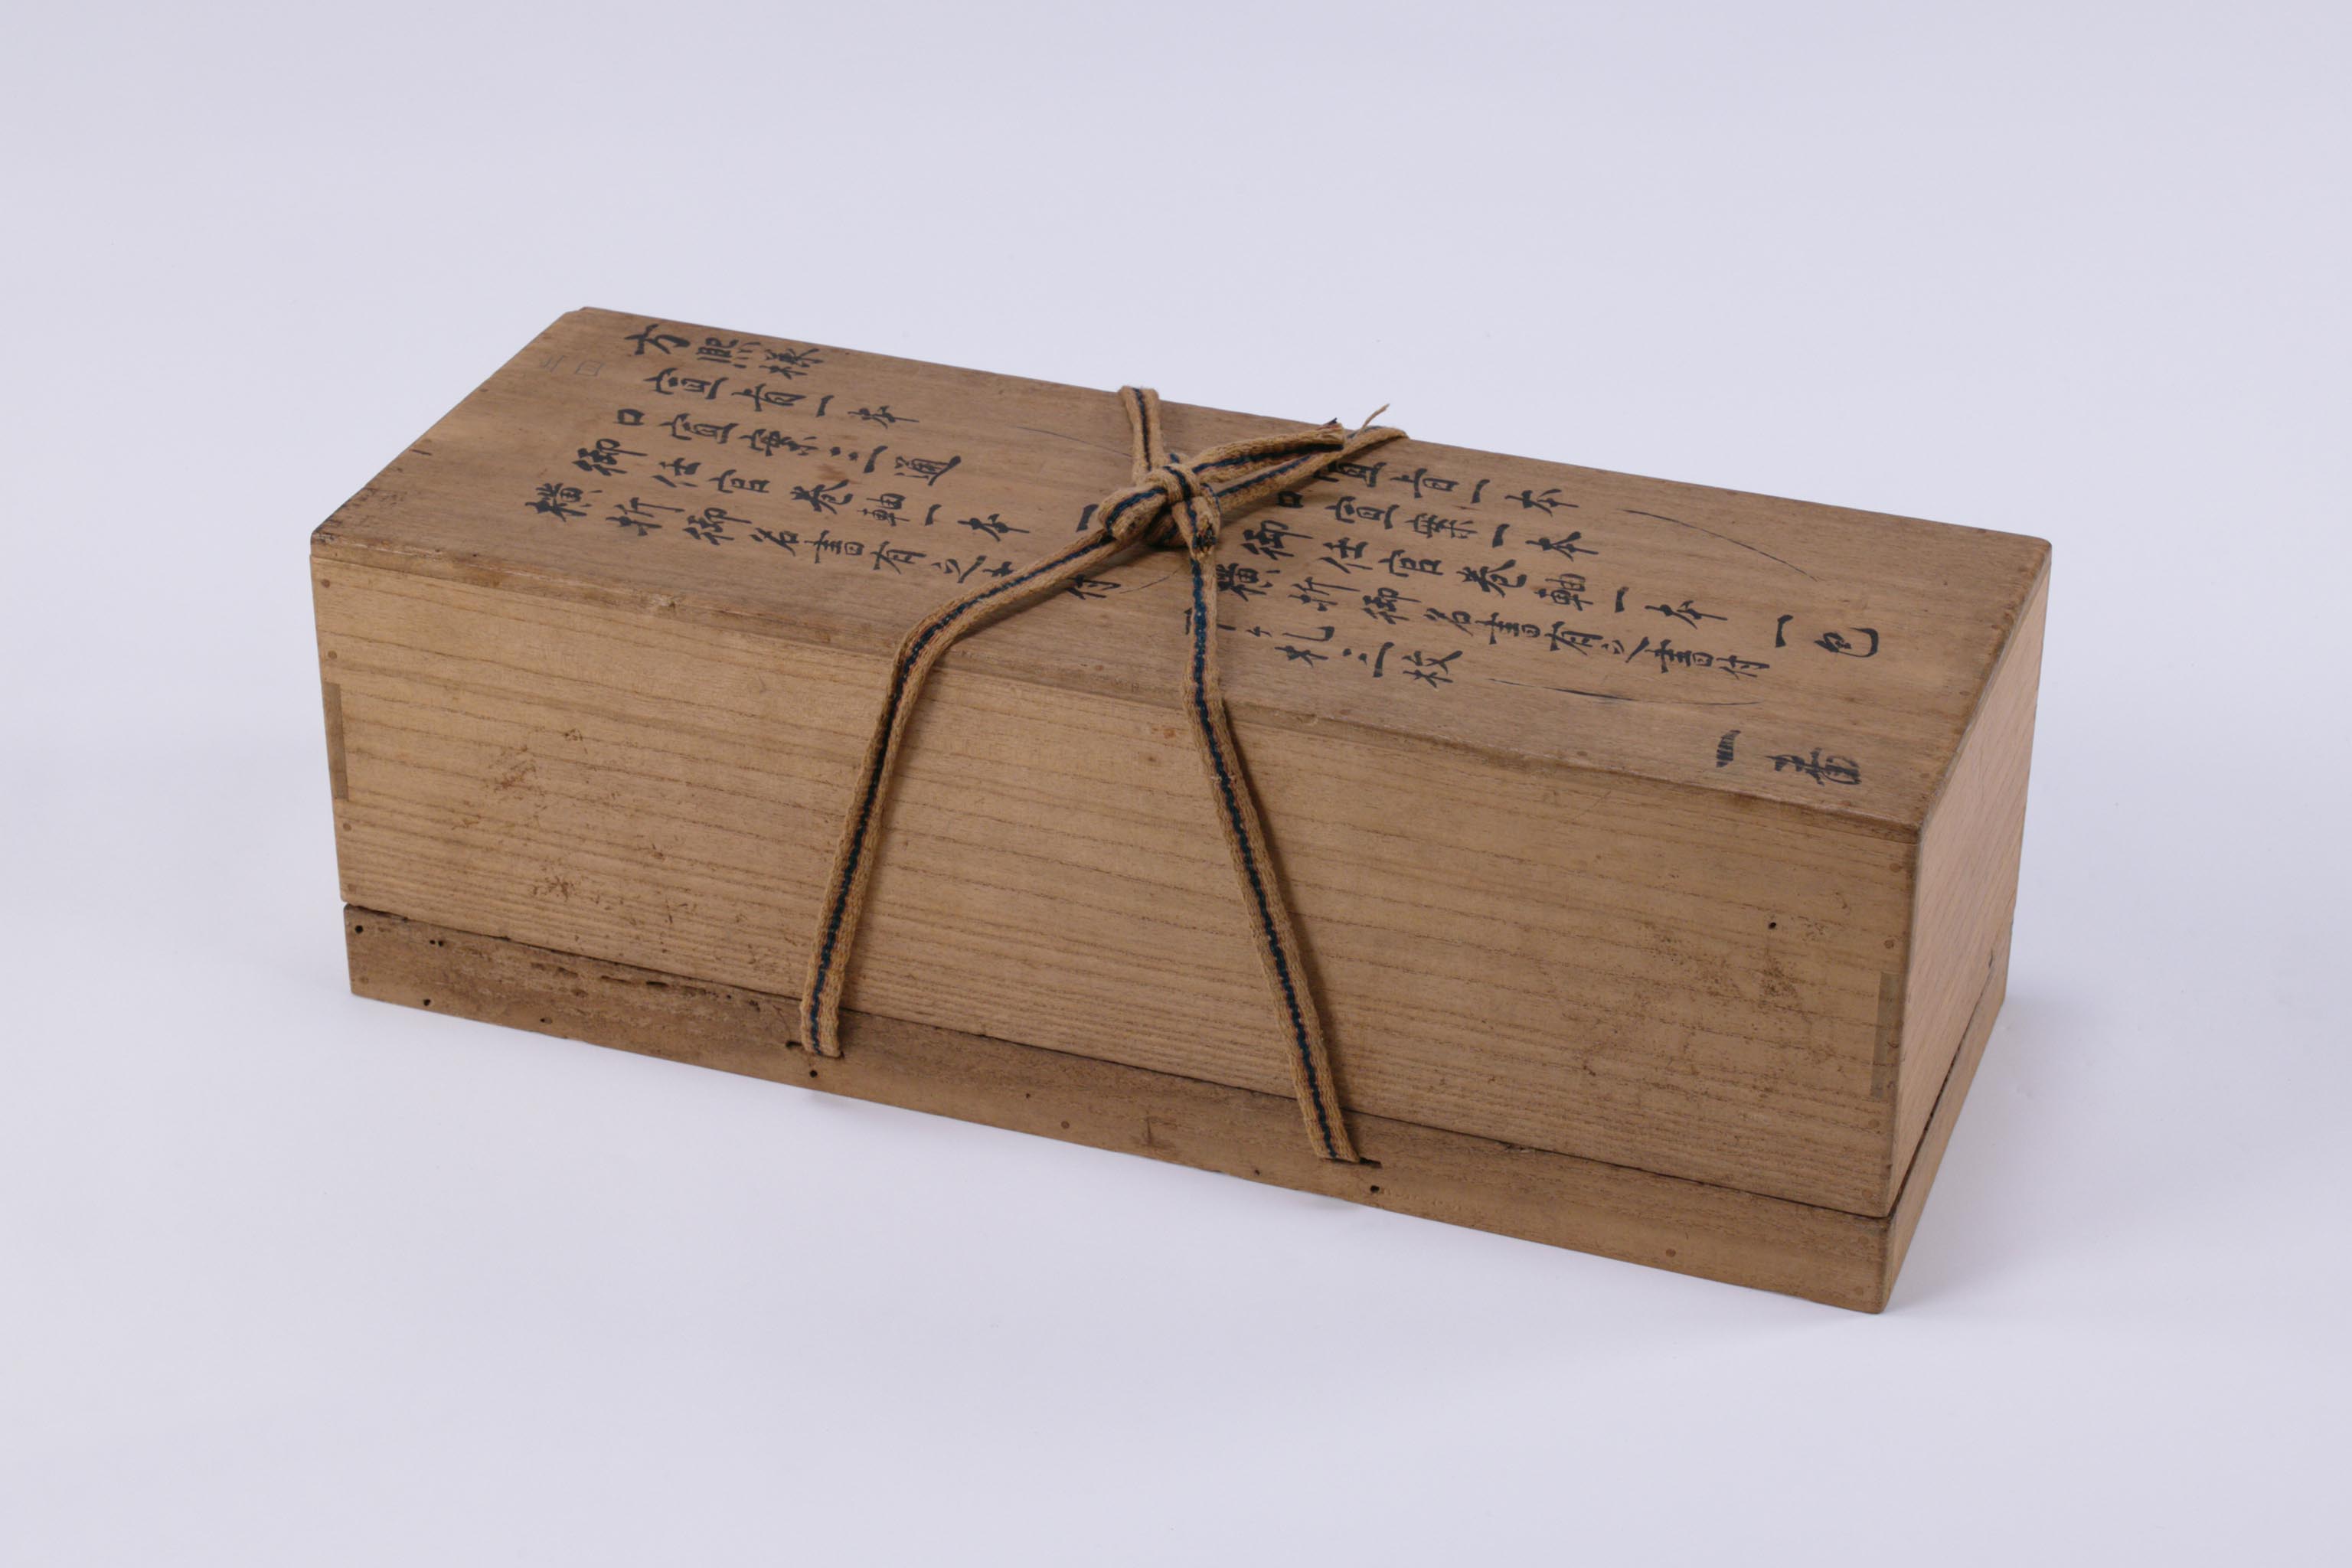 方熈様
宣旨一本
口宣案三通
御任官巻軸一本
一
横折御名書有之書付
宣旨一本
口宣案一本
御任官巻軸一本
横折御名書有之書付
ケ札三枚
一包
一番